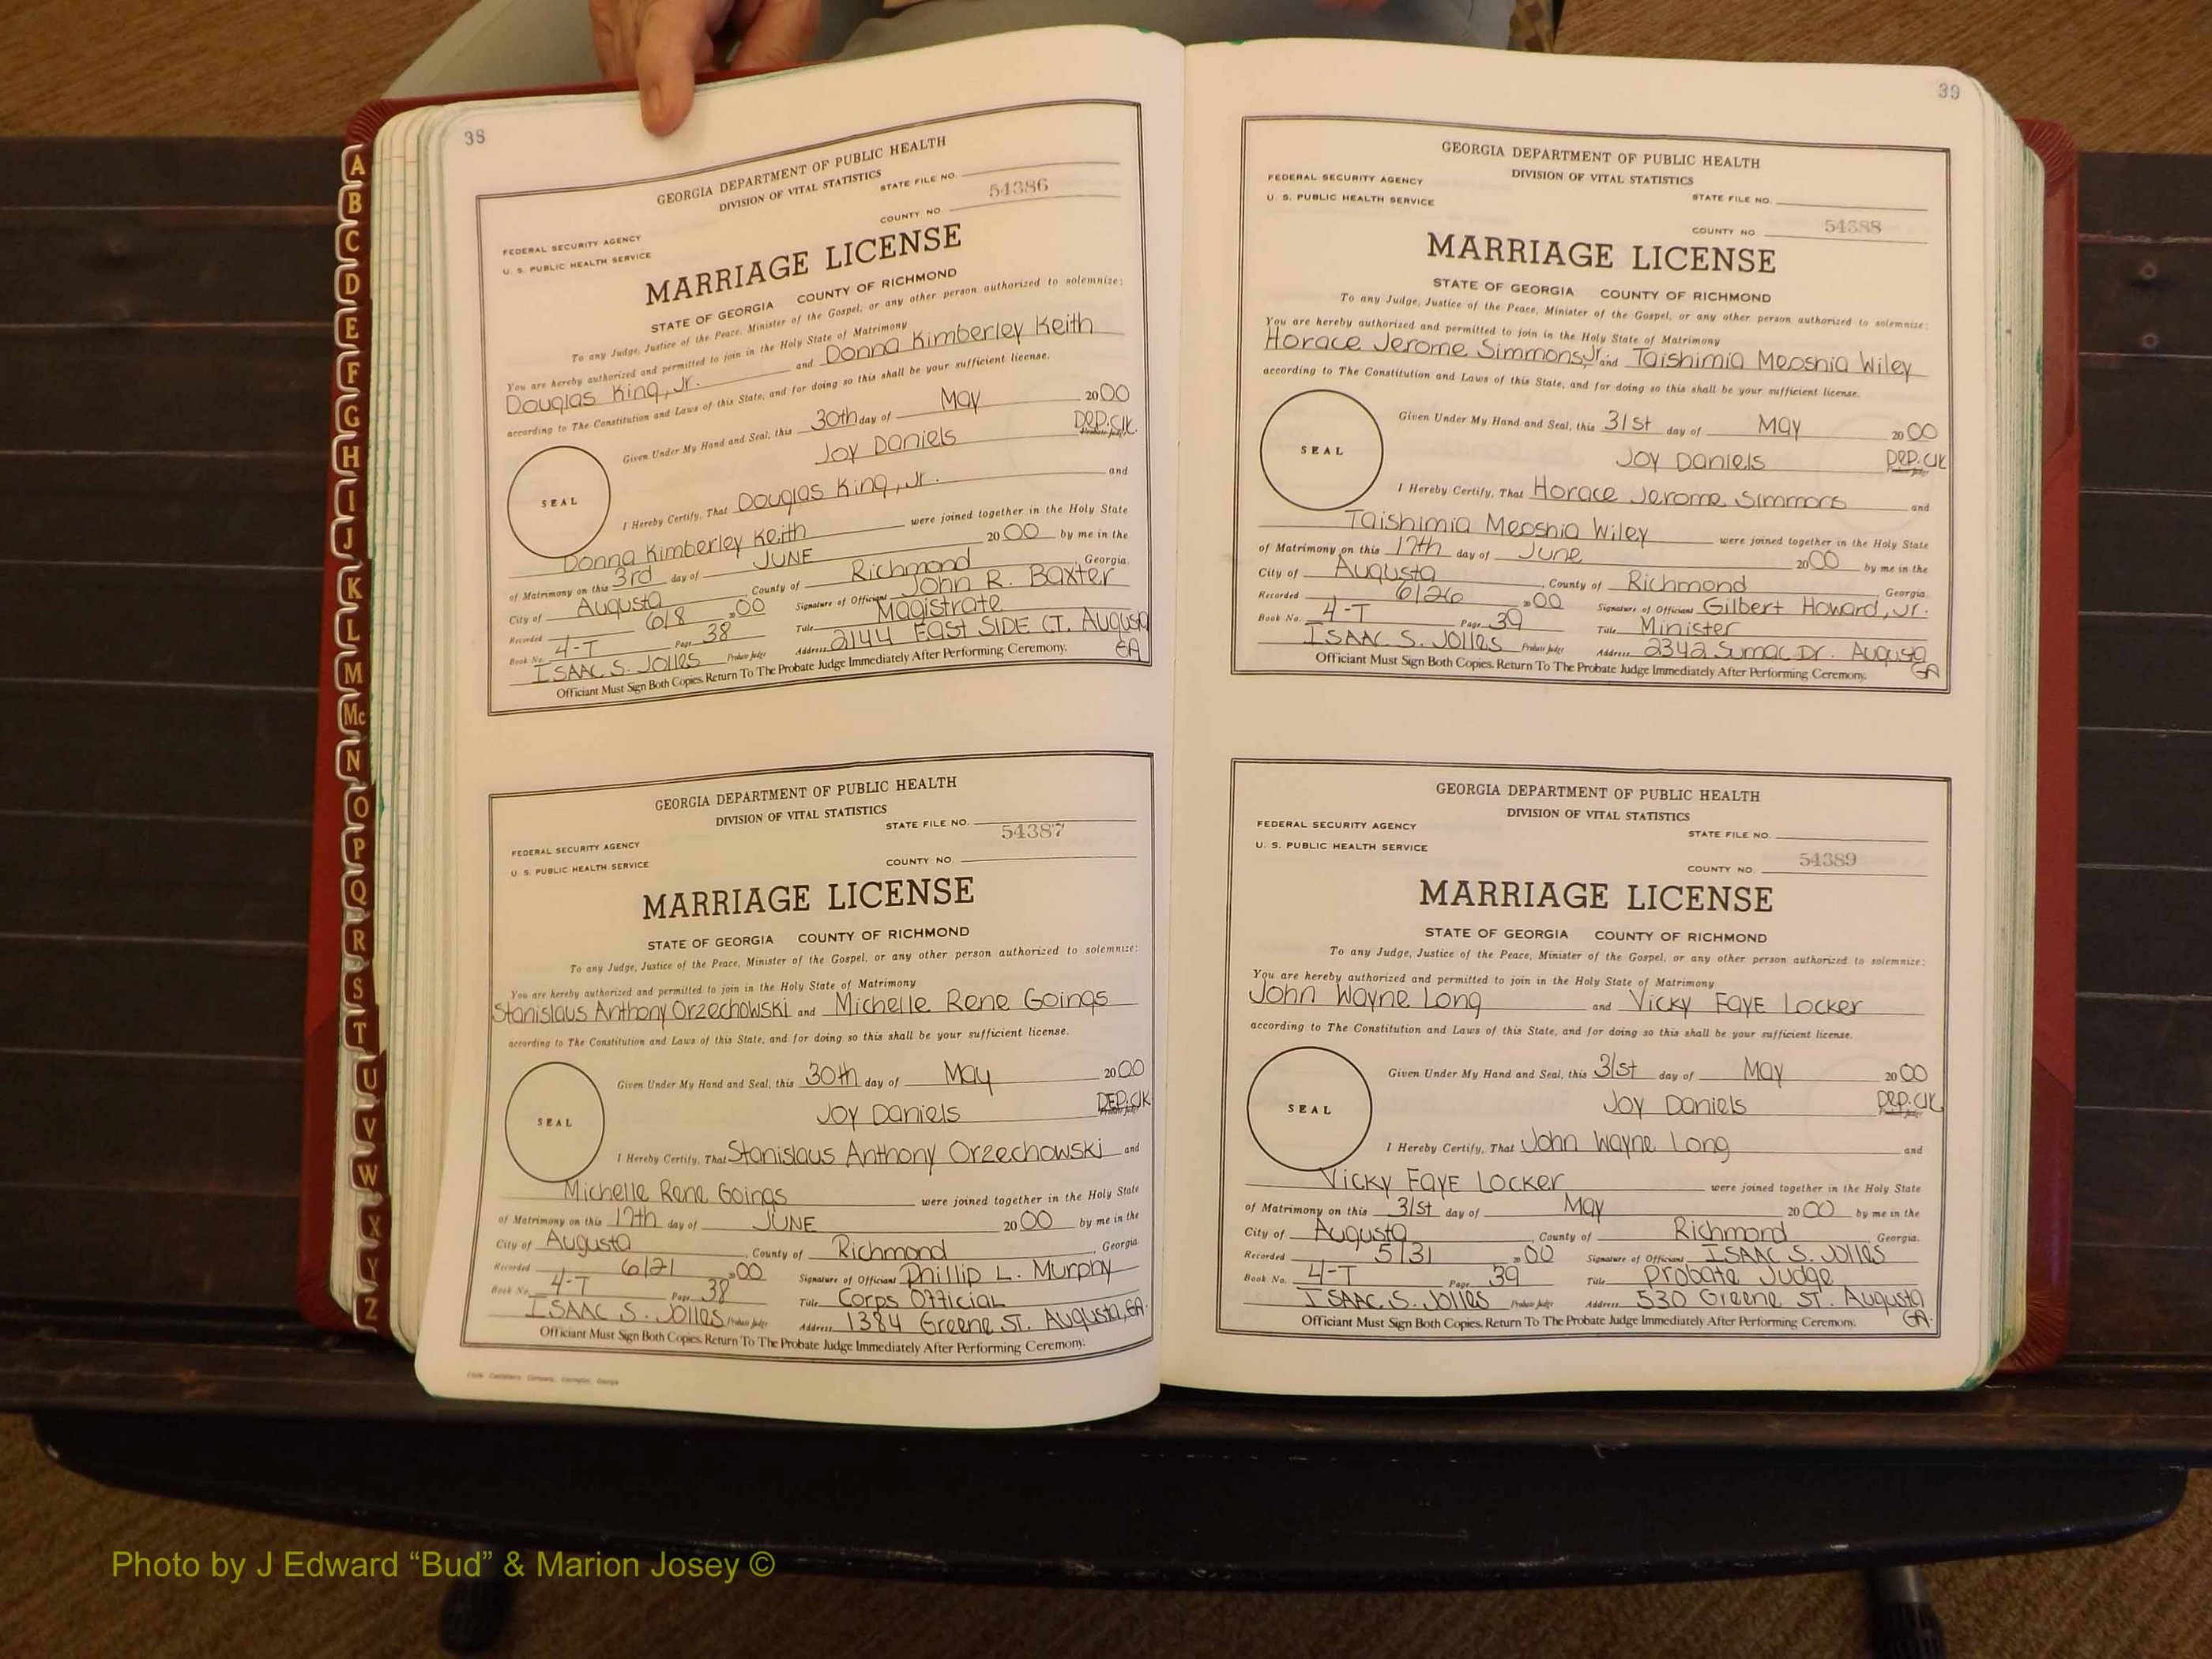 38
GEORGIA DEPARTMENT OF PUBLIC HEALTH
DIVISION OF VITAL STATISTICS
STATE FILE NO.
54386
COUNTY NO.
FEDERAL SECURITY AGENCY
U. S. PUBLIC HEALTH SERVICE
MARRIAGE LICENSE
STATE OF GEORGIA COUNTY OF RICHMOND
To any Judge, Justice of the Peace, Minister of the Gospel, or any other person authorized to solemnize:
You are hereby authorized and permitted to join in the Holy State of Matrimony
Douglas King, Jr. and Donna Kimberley Keith
according to The Constitution and Laws of this State, and for doing so this shall be your sufficient license.
Given Under My Hand and Seal, this 30th day of May 2000
Joy Daniels Dep. Clk.
Probate Judge
SEAL
I Hereby Certify, That Douglas King, Jr. and
Donna Kimberley Keith were joined together in the Holy State
of Matrimony on this 3rd day of JUNE 2000 by me in the
City of Augusta, County of Richmond, Georgia.
Recorded 6/8 2000 Signature of Officiant John R. Baxter
Book No. 4-T Page 38 Title Magistrate
ISAAC S. Jolles Probate Judge Address 2144 East SIDE CT. Augusta GA
Officiant Must Sign Both Copies. Return To The Probate Judge Immediately After Performing Ceremony.
GEORGIA DEPARTMENT OF PUBLIC HEALTH
DIVISION OF VITAL STATISTICS
STATE FILE NO.
54387
COUNTY NO.
FEDERAL SECURITY AGENCY
U. S. PUBLIC HEALTH SERVICE
MARRIAGE LICENSE
STATE OF GEORGIA COUNTY OF RICHMOND
To any Judge, Justice of the Peace, Minister of the Gospel, or any other person authorized to solemnize:
You are hereby authorized and permitted to join in the Holy State of Matrimony
Stanislaus Anthony Orzechowski and Michelle Rene Goings
according to The Constitution and Laws of this State, and for doing so this shall be your sufficient license.
Given Under My Hand and Seal, this 30th day of May 2000
Joy Daniels DEP. Clk
Probate Judge
SEAL
I Hereby Certify, That Stanislaus Anthony Orzechowski and
Michelle Rene Goings were joined together in the Holy State
of Matrimony on this 17th day of JUNE 2000 by me in the
City of Augusta, County of Richmond, Georgia.
Recorded 6/21 2000 Signature of Officiant Phillip L. Murphy
Book No. 4-T Page 38 Title Corps Official
ISAAC S. Jolles Probate Judge Address 1384 Greene ST. Augusta, GA.
Officiant Must Sign Both Copies. Return To The Probate Judge Immediately After Performing Ceremony.
39
GEORGIA DEPARTMENT OF PUBLIC HEALTH
DIVISION OF VITAL STATISTICS
FEDERAL SECURITY AGENCY
U. S. PUBLIC HEALTH SERVICE
STATE FILE NO.
54388
COUNTY NO.
MARRIAGE LICENSE
STATE OF GEORGIA COUNTY OF RICHMOND
To any Judge, Justice of the Peace, Minister of the Gospel, or any other person authorized to solemnize:
You are hereby authorized and permitted to join in the Holy State of Matrimony
Horace Jerome Simmons, Jr. and Taishimia Meoshia Wiley
according to The Constitution and Laws of this State, and for doing so this shall be your sufficient license.
Given Under My Hand and Seal, this 31st day of May 2000
Joy Daniels Dep. Clk
Probate Judge
SEAL
I Hereby Certify, That Horace Jerome Simmons and
Taishimia Meoshia Wiley were joined together in the Holy State
of Matrimony on this 17th day of June 2000 by me in the
City of Augusta, County of Richmond, Georgia.
Recorded 6/26 2000 Signature of Officiant Gilbert Howard, Jr.
Book No. 4-T Page 39 Title Minister
ISAAC S. Jolles Probate Judge Address 2342 Sumac Dr. Augusta GA
Officiant Must Sign Both Copies. Return To The Probate Judge Immediately After Performing Ceremony.
GEORGIA DEPARTMENT OF PUBLIC HEALTH
DIVISION OF VITAL STATISTICS
FEDERAL SECURITY AGENCY
U. S. PUBLIC HEALTH SERVICE
STATE FILE NO.
54389
COUNTY NO.
MARRIAGE LICENSE
STATE OF GEORGIA COUNTY OF RICHMOND
To any Judge, Justice of the Peace, Minister of the Gospel, or any other person authorized to solemnize:
You are hereby authorized and permitted to join in the Holy State of Matrimony
John Wayne Long and Vicky Faye Locker
according to The Constitution and Laws of this State, and for doing so this shall be your sufficient license.
Given Under My Hand and Seal, this 31st day of May 2000
Joy Daniels Dep. Clk
Probate Judge
SEAL
I Hereby Certify, That John Wayne Long and
Vicky Faye Locker were joined together in the Holy State
of Matrimony on this 31st day of May 2000 by me in the
City of Augusta, County of Richmond, Georgia.
Recorded 5/31 2000 Signature of Officiant ISAAC S. Jolles
Book No. 4-T Page 39 Title Probate Judge
ISAAC S. Jolles Probate Judge Address 530 Greene ST. Augusta GA.
Officiant Must Sign Both Copies. Return To The Probate Judge Immediately After Performing Ceremony.
A
B
C
D
E
F
G
H
I
J
K
L
M
Mc
N
O
P
Q
R
S
T
U
V
W
X
Y
Z
Photo by J Edward “Bud” & Marion Josey ©